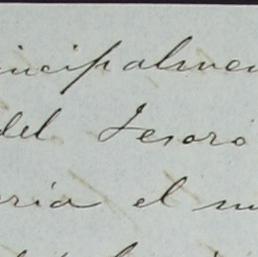 incipalmen
del Tesoro
eria el